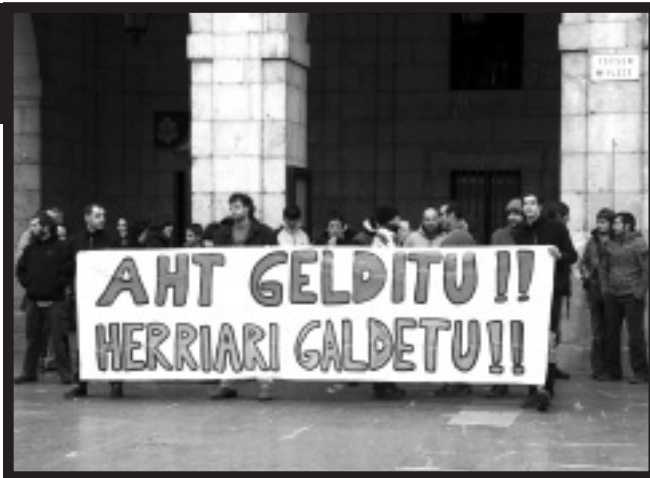 AHT GELDITU!!
HERRIARI GALDETU!!